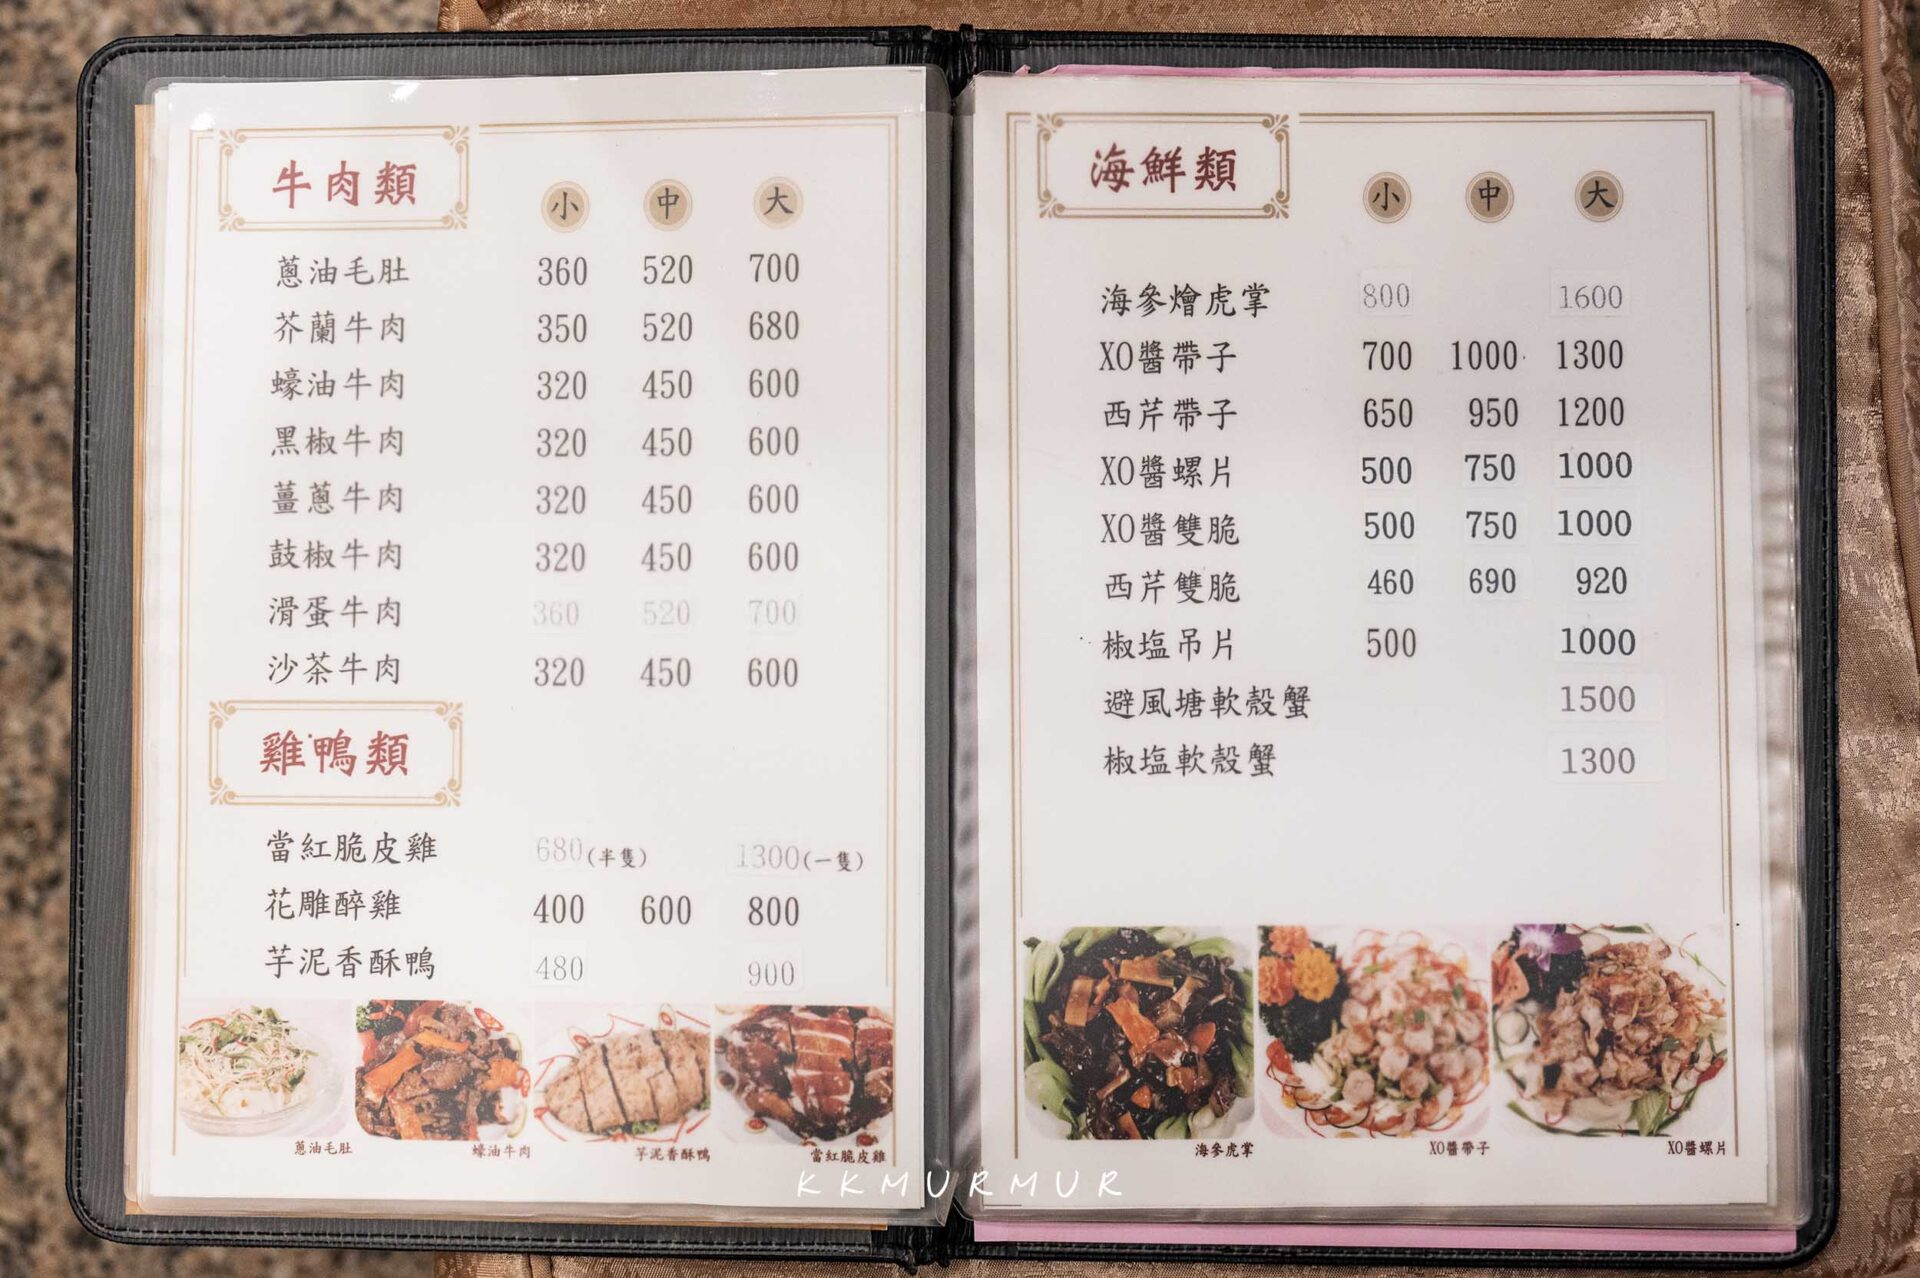 牛肉類 小 中 大
蔥油毛肚 360 520 700
芥蘭牛肉 350 520 680
蠔油牛肉 320 450 600
黑椒牛肉 320 450 600
薑蔥牛肉 320 450 600
鼓椒牛肉 320 450 600
滑蛋牛肉 360 520 700
沙茶牛肉 320 450 600
雞鴨類
當紅脆皮雞 680(半隻) 1300(一隻)
花雕醉雞 400 600 800
芋泥香酥鴨 480 900
蔥油毛肚 蠔油牛肉 芋泥香酥鴨 當紅脆皮雞
海鮮類 小 中 大
海參燴虎掌 800 1600
XO醬帶子 700 1000 1300
西芹帶子 650 950 1200
XO醬螺片 500 750 1000
XO醬雙脆 500 750 1000
西芹雙脆 460 690 920
椒塩吊片 500 1000
避風塘軟殼蟹 1500
椒塩軟殼蟹 1300
海參虎掌 XO醬帶子 XO醬螺片
KKMURMUR